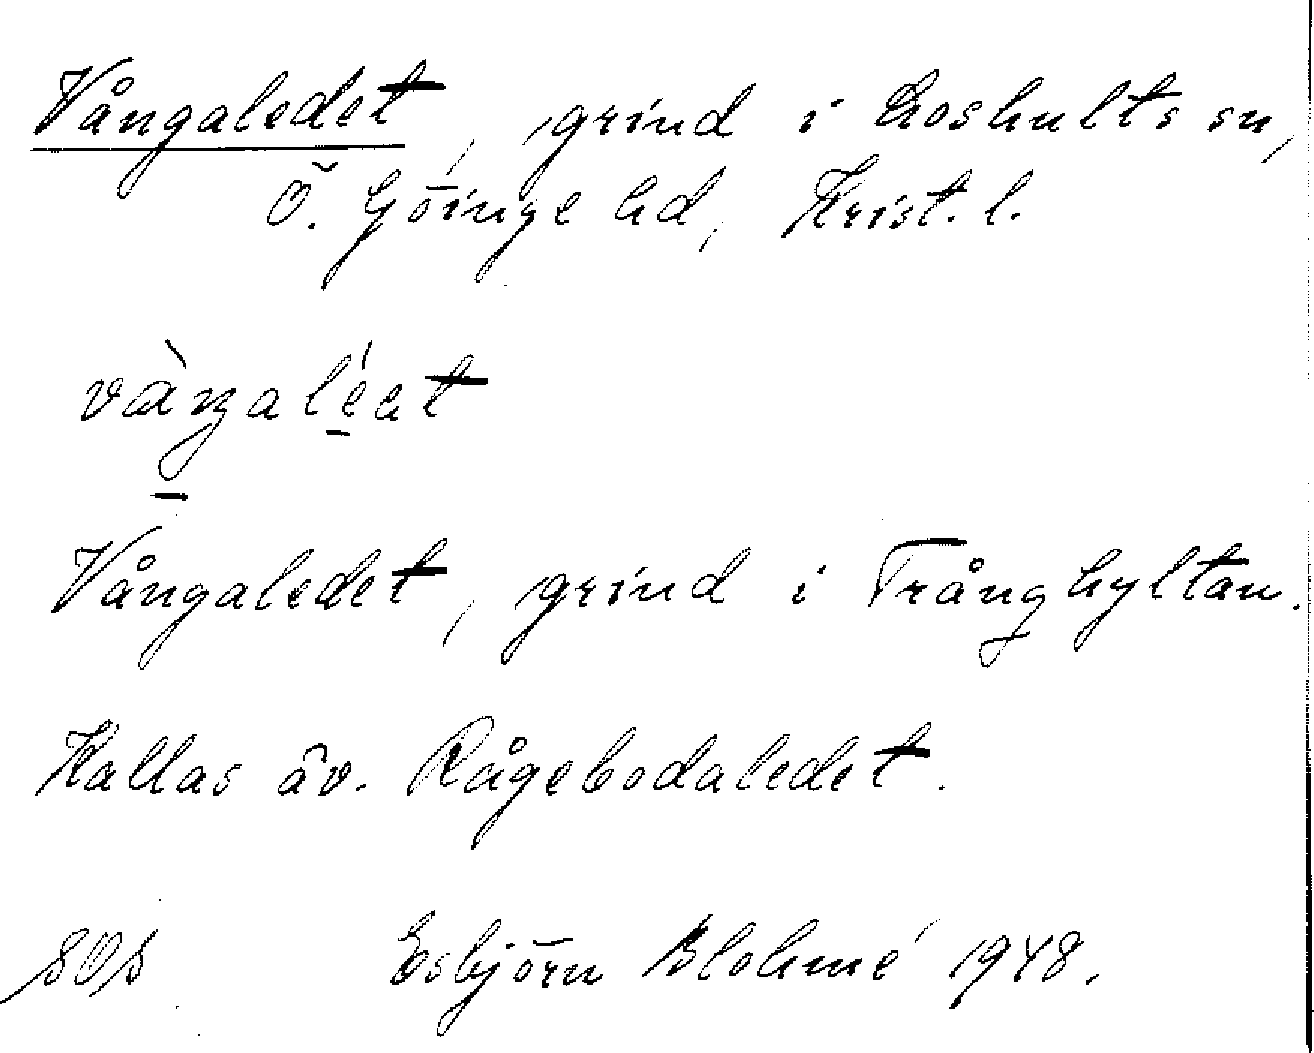 Vångaledet, grind i Loshults sn,
Ö. Göinge hd, Krist. l.
Vångaledet, grind i Trånghyltan.
Kallas äv. Rågebodaledet.
Esbjörn Blohmé 1948.